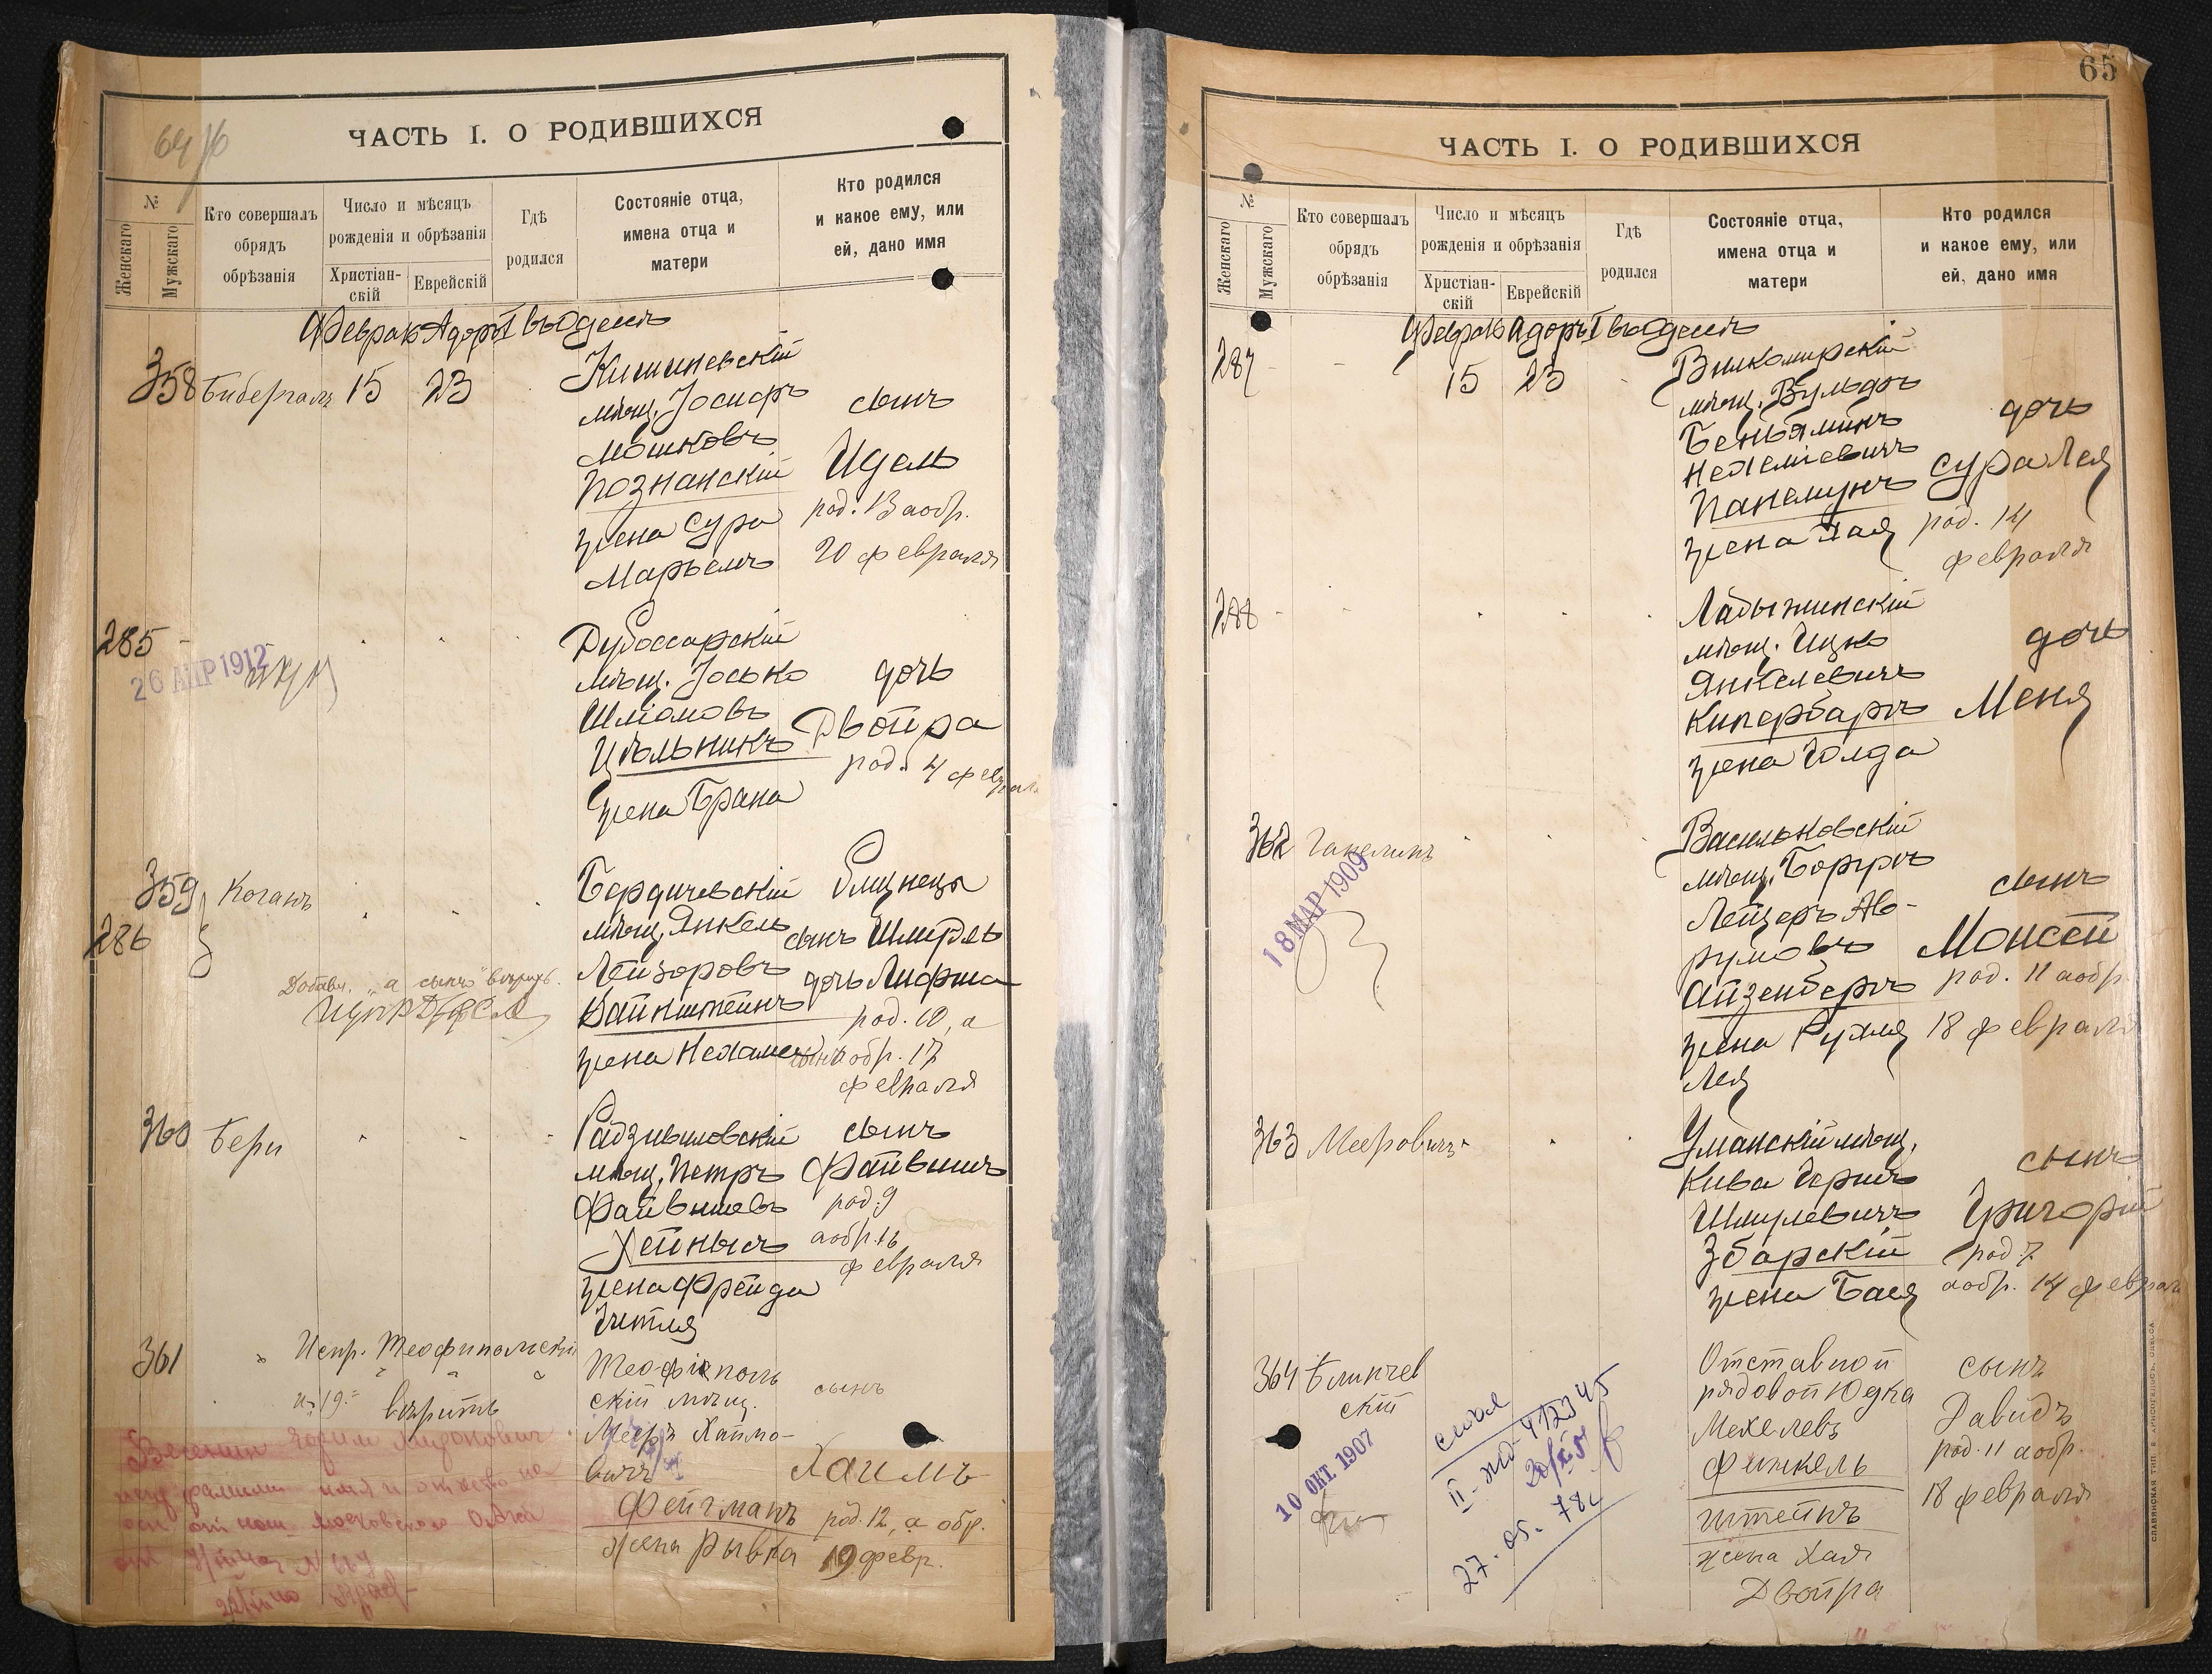 64 об
ЧАСТЬ I. О РОДИВШИХСЯ
№
Женскаго
Мужскаго
Кто совершалъ
обрядъ
обрѣзанія
Число и мѣсяцъ
рожденія и обрѣзанія
Христіан-
скій
Еврейскій
Гдѣ
родился
Состояніе отца,
имена отца и
матери
Кто родился
и какое ему, или
ей, дано имя
Февраль Адаръ I въ Одессѣ
358 Биберталь 15 23
Кишиневскій
мѣщ. Іосифъ
Мошковъ
Познанскій
жена Сура
Марьемъ
сынъ
Идель
род. 13 а обр.
20 февраля
285
26 АПР 1912
Дубоссарскій
мѣщ. Іосько
Шліомовъ
Цѣльникъ
жена Брана
дочь
Двойра
род. 4 февраля
359 Коганъ
286
Бердичевскій
мѣщ. Янкель
Лейзоровъ
Вайнштейнъ
жена Нехаме
близнецы
сынъ Шмирль
дочь Лифша
род. 10, а
сынъ обр. 17
февраля
Добавл. „а сынъ" вѣрить.
360 Бери
Радзивиловскій
мѣщ. Петръ
Файвишевъ
Хейнысъ
жена Фрейда
Гитля
сынъ
Файвишъ
род. 9
а обр. 16
февраля
361
Испр. Теофипольскій
и „19" вѣрить
Теофиполь
скій мѣщ.
Мееръ Хаимо-
вичъ
Фейгманъ
жена Рывка
сынъ
Хаимъ
род. 12, а обр.
19 февр.
65
ЧАСТЬ I. О РОДИВШИХСЯ
№
Женскаго
Мужскаго
Кто совершалъ
обрядъ
обрѣзанія
Число и мѣсяцъ
рожденія и обрѣзанія
Христіан-
скій
Еврейскій
Гдѣ
родился
Состояніе отца,
имена отца и
матери
Кто родился
и какое ему, или
ей, дано имя
Февраль Адаръ I въ Одессѣ
287 - - 15 23
Вилкомирскій
мѣщ. Вульфъ
Беньяминъ
Нехеміевичъ
Панемунъ
жена Хая
дочь
Сура Лея
род. 14
февраля
288
Ладыжинскій
мѣщ. Ицко
Янкелевичъ
Кипербаргъ
жена Голда
дочь
Меня
362 Ганелинъ
18 МАР 1909
Васильковскій
мѣщ. Боррхъ
Лейзеръ Ав-
румовъ
Айзенбергъ
жена Рухля
Лея
сынъ
Моисей
род. 11 а обр.
18 февраля
363 Мееровичъ
Уманскій мѣщ.
Кива Гершъ
Шмулевичъ
Збарскій
жена Бася
сынъ
Григорій
род. 7
а обр. 14 февраля
364 Блинчев
скій
10 ОКТ. 1907
27. 05. 78г
Отставной
рядовой Юдка
Мехелевъ
Финкель
штейнъ
жена Хая
Двойра
сынъ
Давидъ
род. 11 а обр.
18 февраля